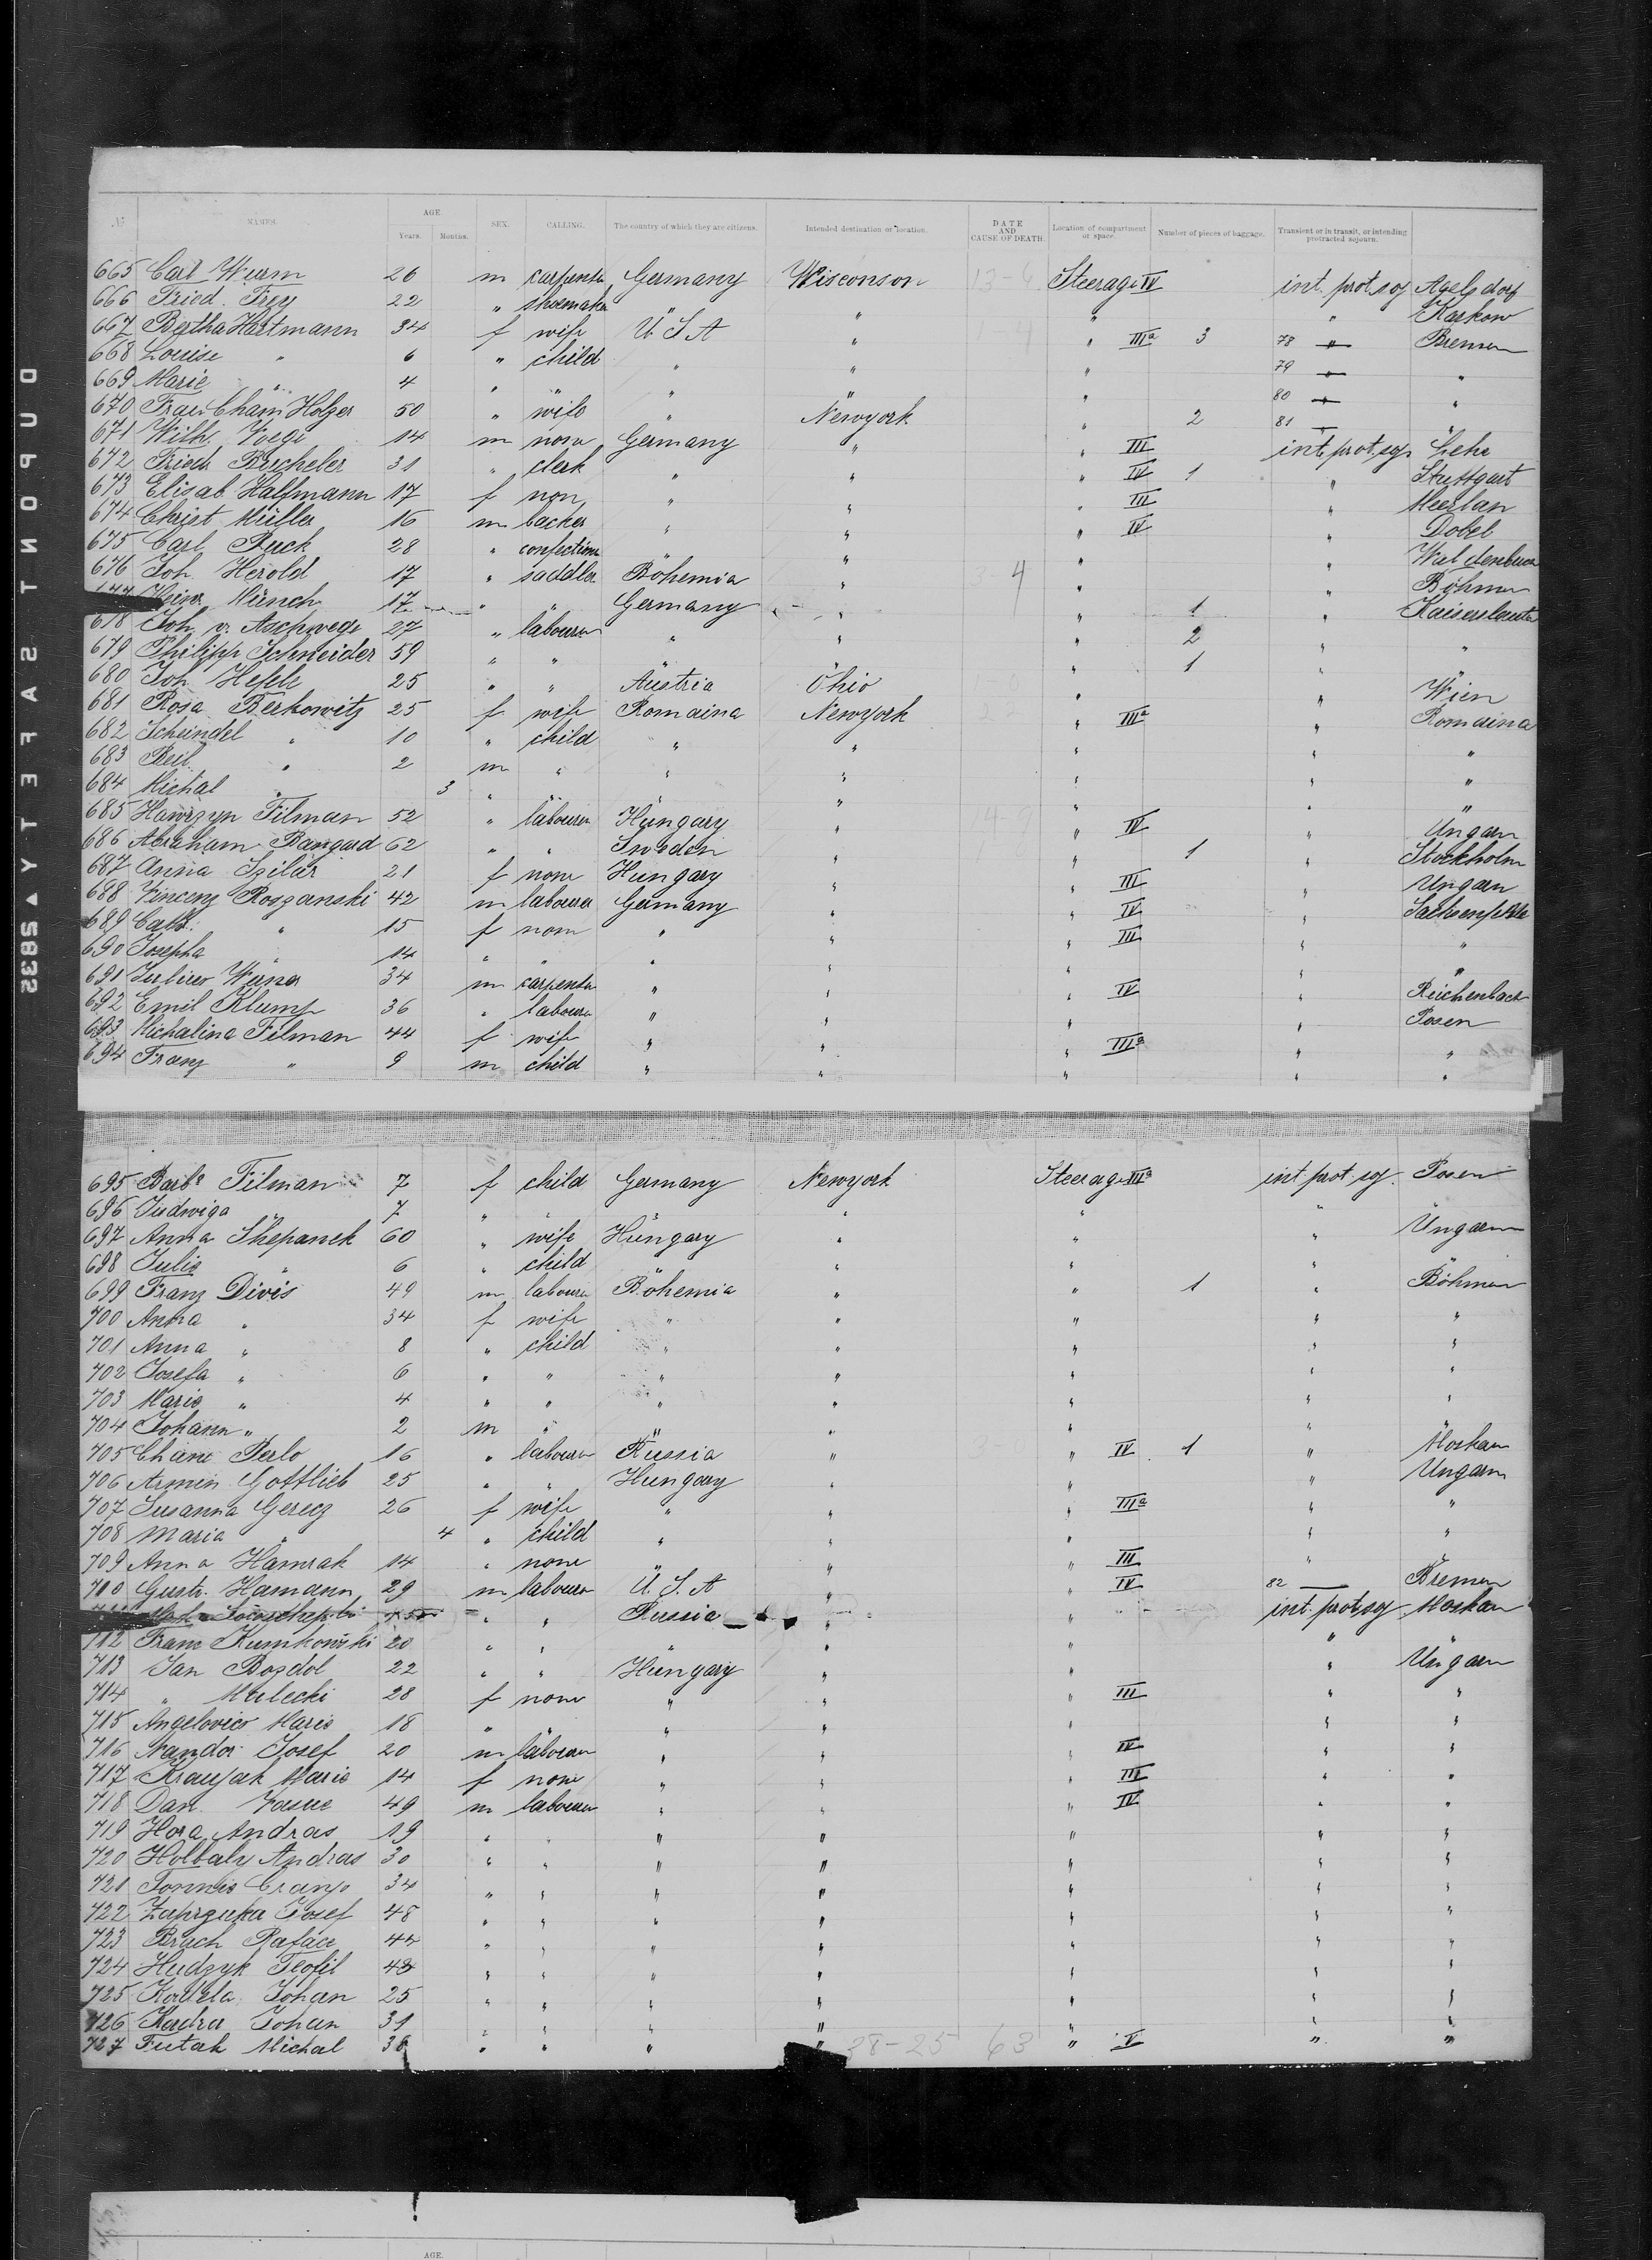 DUPONT SAFETY 5832
№ NAMES. AGE. Years. Months. SEX. CALLING. The country of which they are citizens. Intended destination or location. DATE AND CAUSE OF DEATH. Location of compartment or space. Number of pieces of baggage. Transient or in transit, or intending protracted sojourn.
665 Carl Wurm 26 m carpenter Germany Wisconson Steerage IV int. prot. soj
666 Fried. Frey 22 " shoemaker " " " " Karkow
667 Bertha Hartmann 34 f wife U S A " " IIIa 3 78 " Bremen
668 Louise " 6 " child " " " 79 " "
669 Marie " 4 " " " " " 80 " "
670 Frau Chaim Holzer 50 " wife " Newyork " 2 81 " "
671 Wilh. 14 m none Germany " " III int. prot. soj. Lehe
672 Friedr Bucheler 31 " clerk " " " IV 1 " Stuttgart
673 Elisab Halfmann 17 f non " " " III "
674 Christ Müller 16 m backer " " " IV " Dobel
675 Carl Ruck 28 " confection " " " "
676 Joh. Herold 17 " saddler Böhemia " 4 " " Böhmen
677 Heinr. Münch 17 " " Germany " " 1 " Kaiserslautern
678 Joh v. Aschwege 27 " labourer " " " 2 " "
679 Philipp Schneider 59 " " " " " 1 "
680 Joh. Hefele 25 " " Austria Ohio " " Wien
681 Rosa Berkowitz 25 f wife Romaina Newyork " IIIa " Romaina
682 Scheindel " 10 " child " " " " "
683 Beil " 2 m " " " " " "
684 Michal " 3 " " " " " " "
685 Hawrzyn Filman 52 " labourer Hungary " " IV " Ungarn
686 Abraham Bangard 62 " " Sweden " " 1 " Stockholm
687 Anna Szilar 21 f none Hungary " " III " Ungarn
688 Vincenz Roszanski 42 m labourer Germany " " IV "
689 Cath. " 15 f none " " " III " "
690 Josepha " 14 " " " " " " "
691 34 m carpenter " " " IV " Reichenbach
692 Emil Klump 36 " labourer " " " " Posen
693 Michalina Filman 44 f wife " " " IIIa " "
694 Franz " 9 m child " " " " "
695 Barba Filman 7 f child Germany Newyork Steerage IIIa int prot. soj. Posen
696 Ludwiga " 7 " " " " " " "
697 Anna Shepanek 60 " wife Hungary " " " Ungarn
698 Julie " 6 " child " " " " "
699 Franz Divis 49 m labourer Böhemia " " 1 " Böhmen
700 Anna " 34 f wife " " " " "
701 Anna " 8 " child " " " " "
702 Josefa " 6 " " " " " " "
703 Marie " 4 " " " " " " "
704 Johann " 2 m " " " " " "
705 Chane Perlo 16 " labourer Russia " " IV 1 " Moskau
706 Armin Gottlieb 25 " " Hungary " " " Ungarn
707 Susanna Gerecz 26 f wife " " " IIIa " "
708 Maria " 4 " child " " " " "
709 Anna Hamrak 14 " none " " " III " "
710 Gustv. Hamann 29 m labourer U. S. A " " IV 82 Bremen
711 " " Russia " " int. prot. soj Moskau
712 Franz Kumkowski 20 " " " " " " "
713 Jan Bogdol 22 " " Hungary " " " Ungarn
714 " Malecki 28 f none " " " III " "
715 Angelovics Marie 18 " " " " " " "
716 Nandor Josef 20 m labourer " " " IV " "
717 Kraujak Marie 14 f none " " " III " "
718 Dan 49 m labourer " " " IV " "
719 Hora Andras 19 " " " " " " "
720 Holbaly Andras 30 " " " " " " "
721 34 " " " " " " "
722 Josef 48 " " " " " " "
723 Bruch 44 " " " " " " "
724 Hudzyk Teofil 43 " " " " " " "
725 Kadela Johan 25 " " " " " " "
726 Kudra Johan 31 " " " " " " "
727 Futak Michal 38 " " " " 28-25 63 " V " "
AGE.